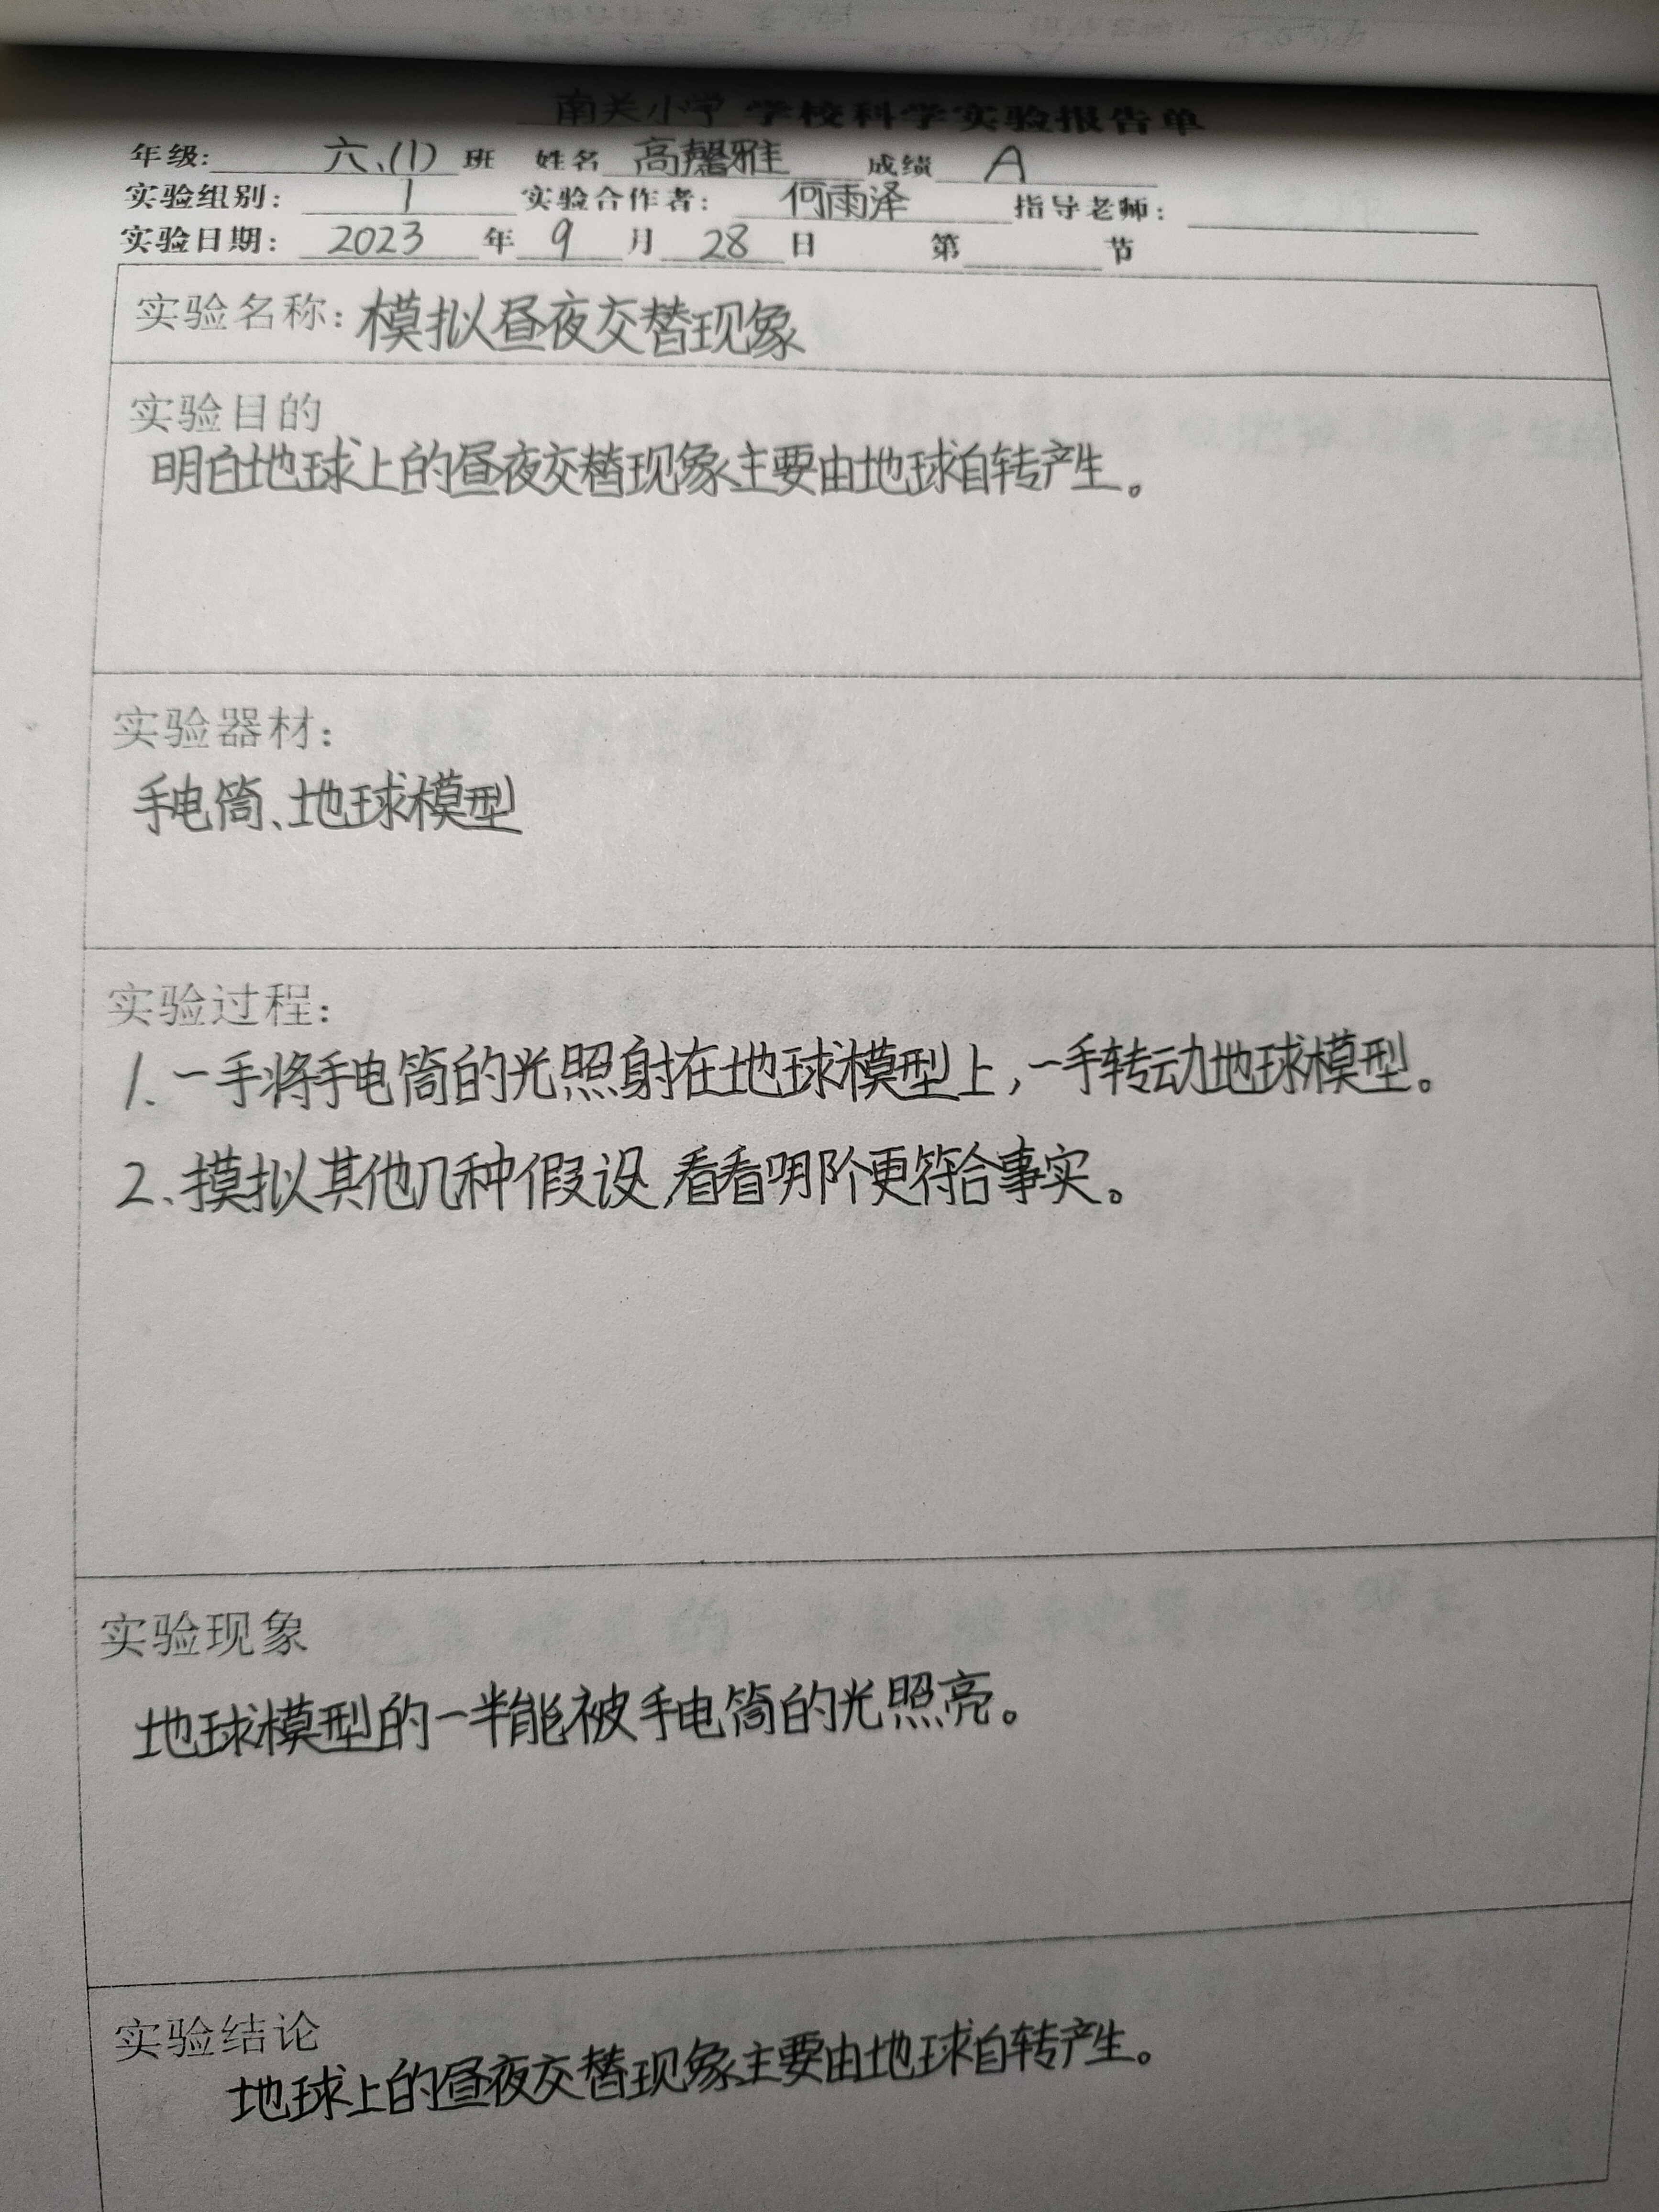 南关小学 学校科学实验报告单
年级: 六、(1) 班 姓名 高馨雅 成绩 A
实验组别: 1 实验合作者: 何雨泽 指导老师:
实验日期: 2023 年 9 月 28 日 第 节
实验名称: 模拟昼夜交替现象
实验目的
明白地球上的昼夜交替现象主要由地球自转产生。
实验器材:
手电筒、地球模型
实验过程:
1. 一手将手电筒的光照射在地球模型上,一手转动地球模型。
2、摸拟其他几种假设,看看哪个更符合事实。
实验现象
地球模型的一半能被手电筒的光照亮。
实验结论
地球上的昼夜交替现象主要由地球自转产生。